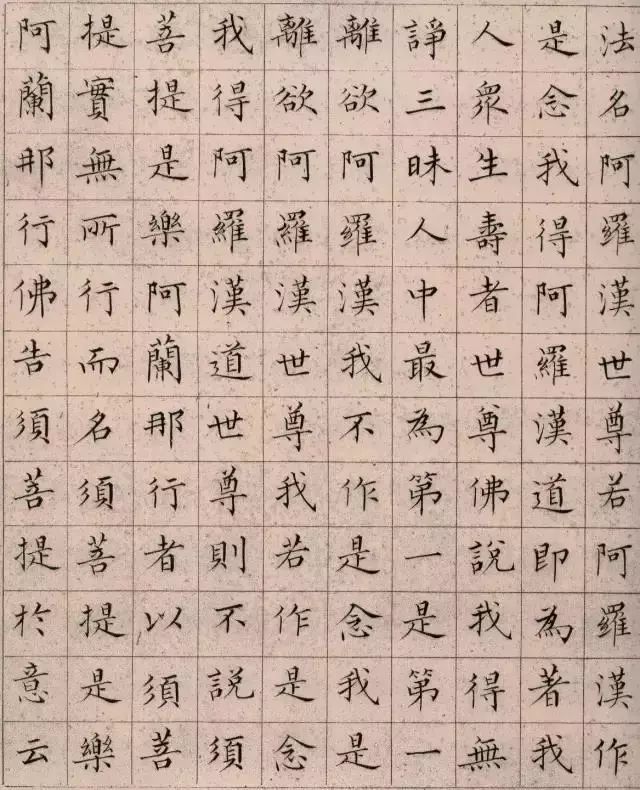 法名阿羅漢世尊若阿羅漢作
是念我得阿羅漢道即為著我
人眾生壽者世尊佛說我得無
諍三昧人中最為第一是第一
離欲阿羅漢我不作是念我是
離欲阿羅漢世尊我若作是念
我得阿羅漢道世尊則不說須
菩提是樂阿蘭那行者以須菩
提實無所行而名須菩提是樂
阿蘭那行佛告須菩提於意云